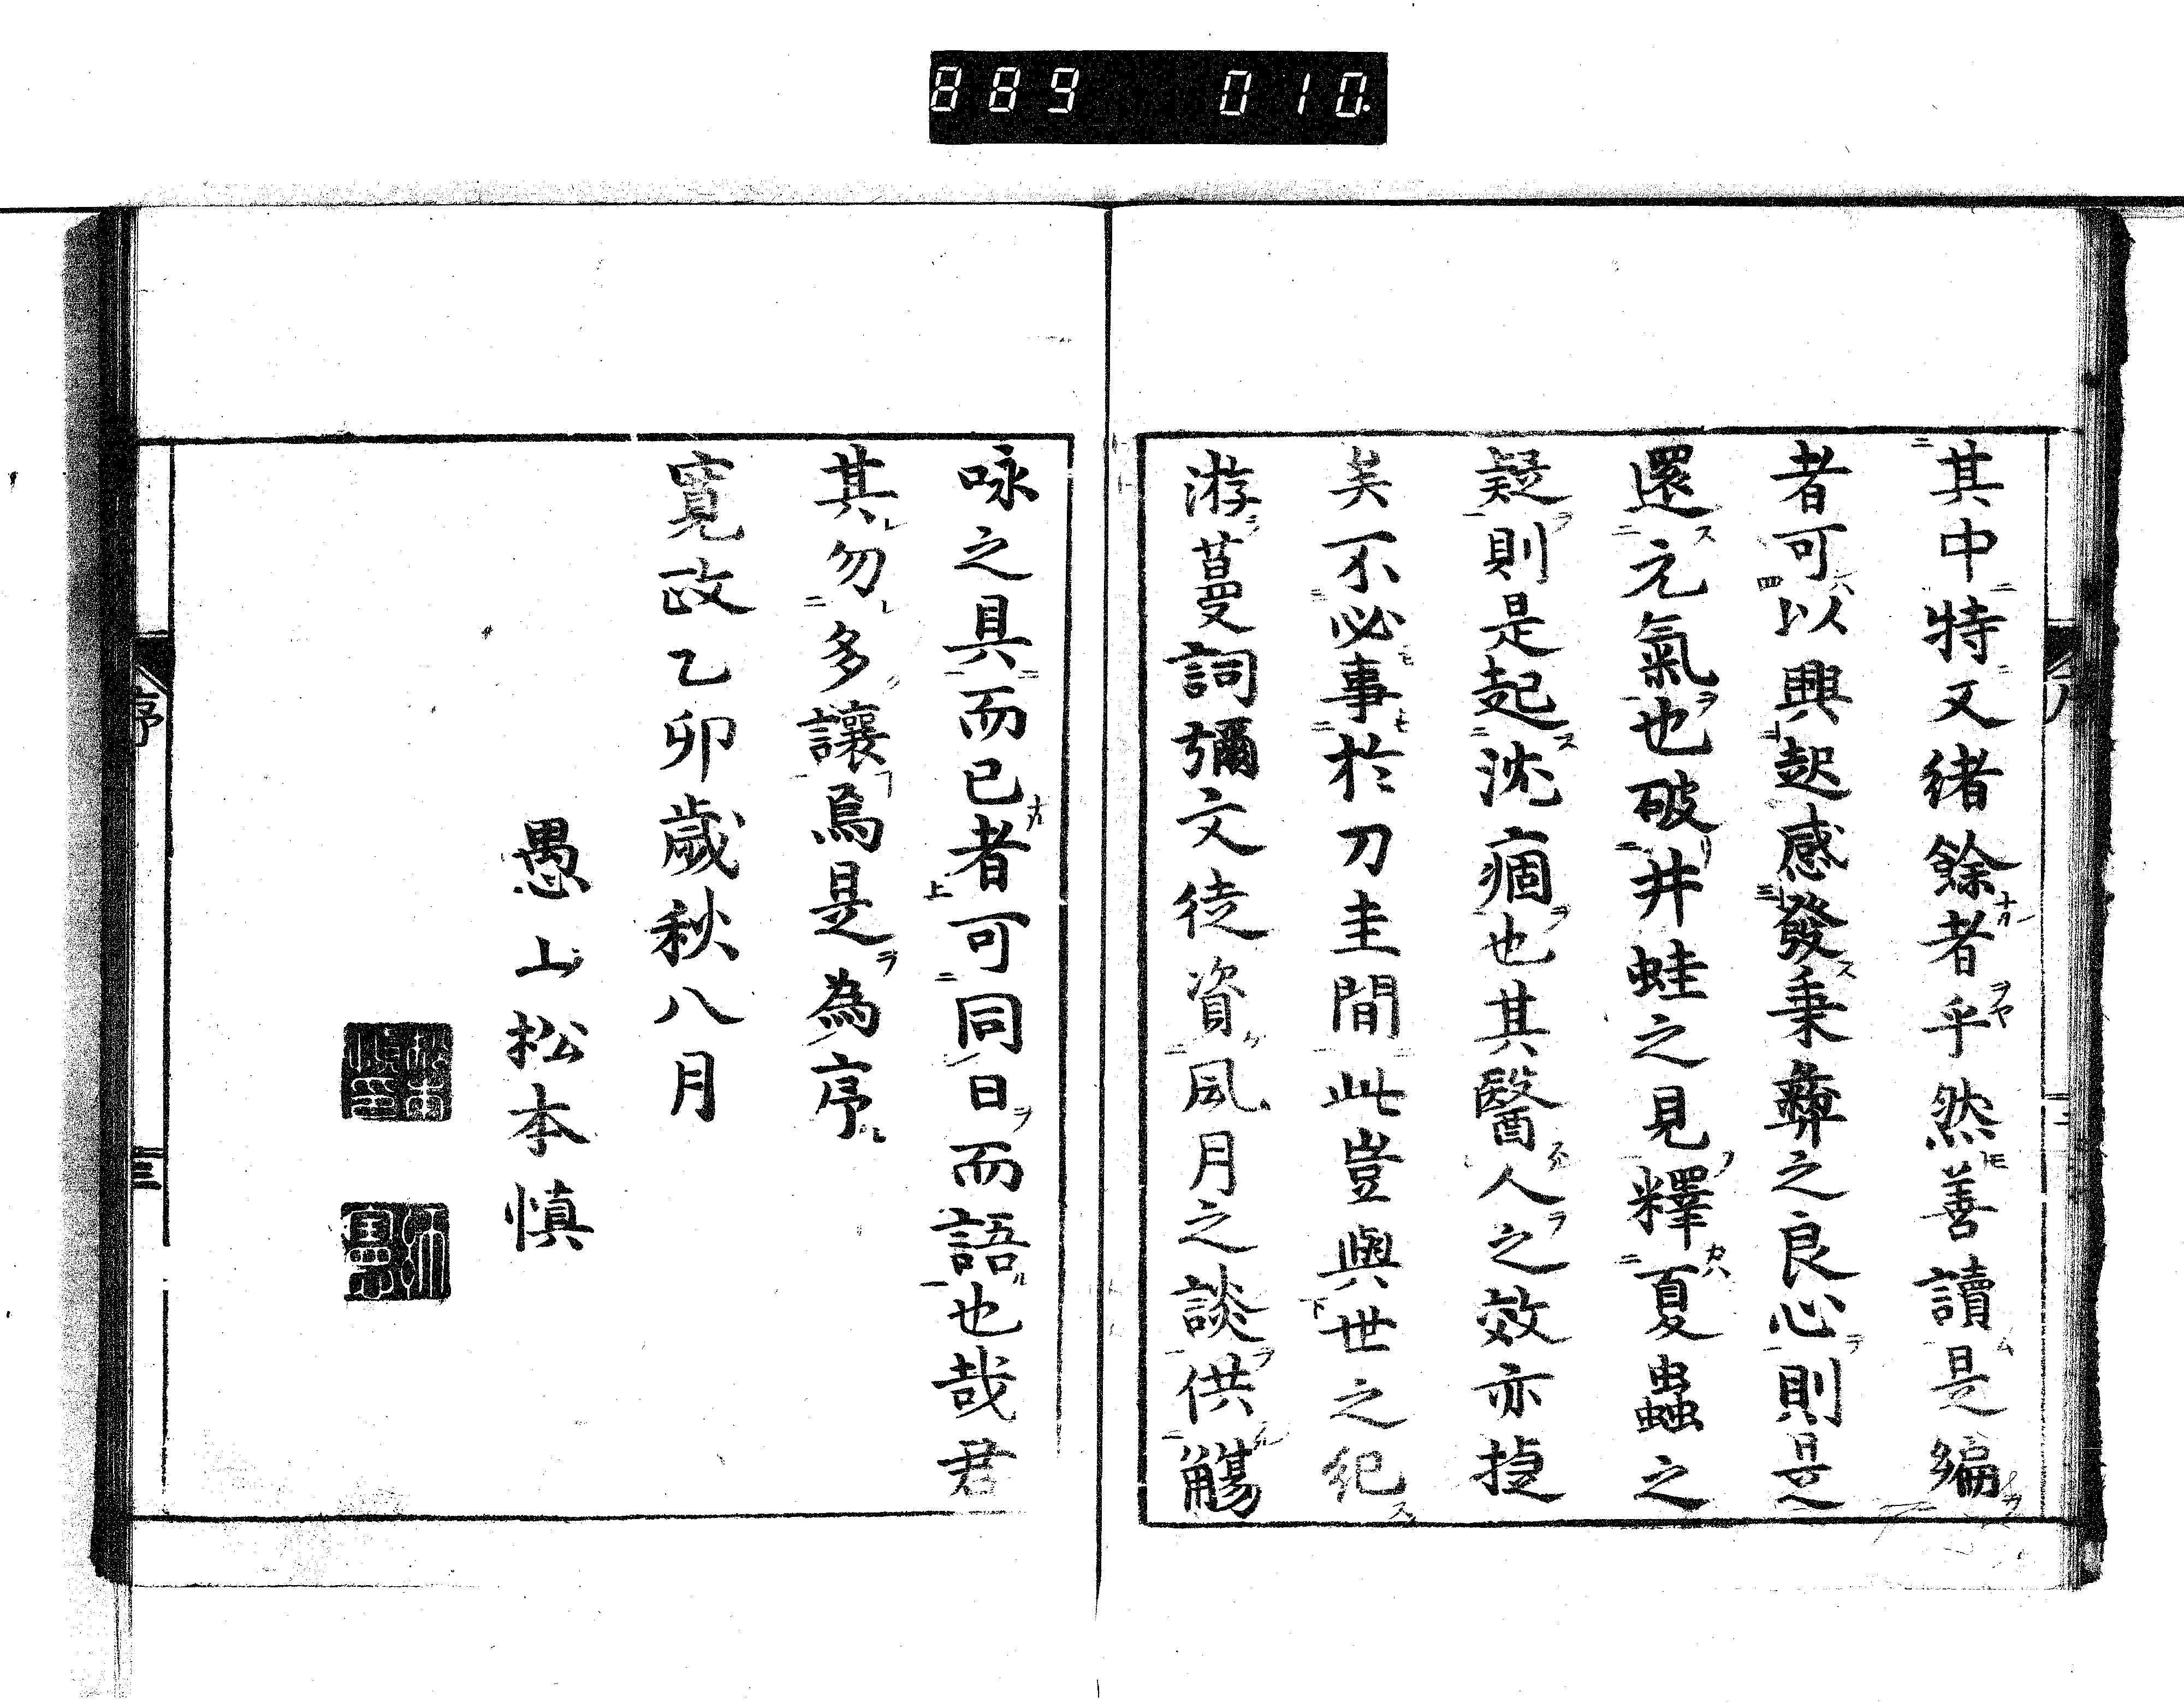 889 010.
其中特又緒餘者乎然善讀是編
者可以興起感發秉彝之良心則是
還元氣也破井蛙之見釋夏蟲之
疑則是起沈痼也其醫人之效亦捷
矣不必事於刀圭間此豈與世之紀
游蔓詞彌文徒資風月之談供觴
咏之具而已者可同日而語也哉君
其勿多讓焉是為序
寛政乙卯歳秋八月
愚山松本慎
序
三